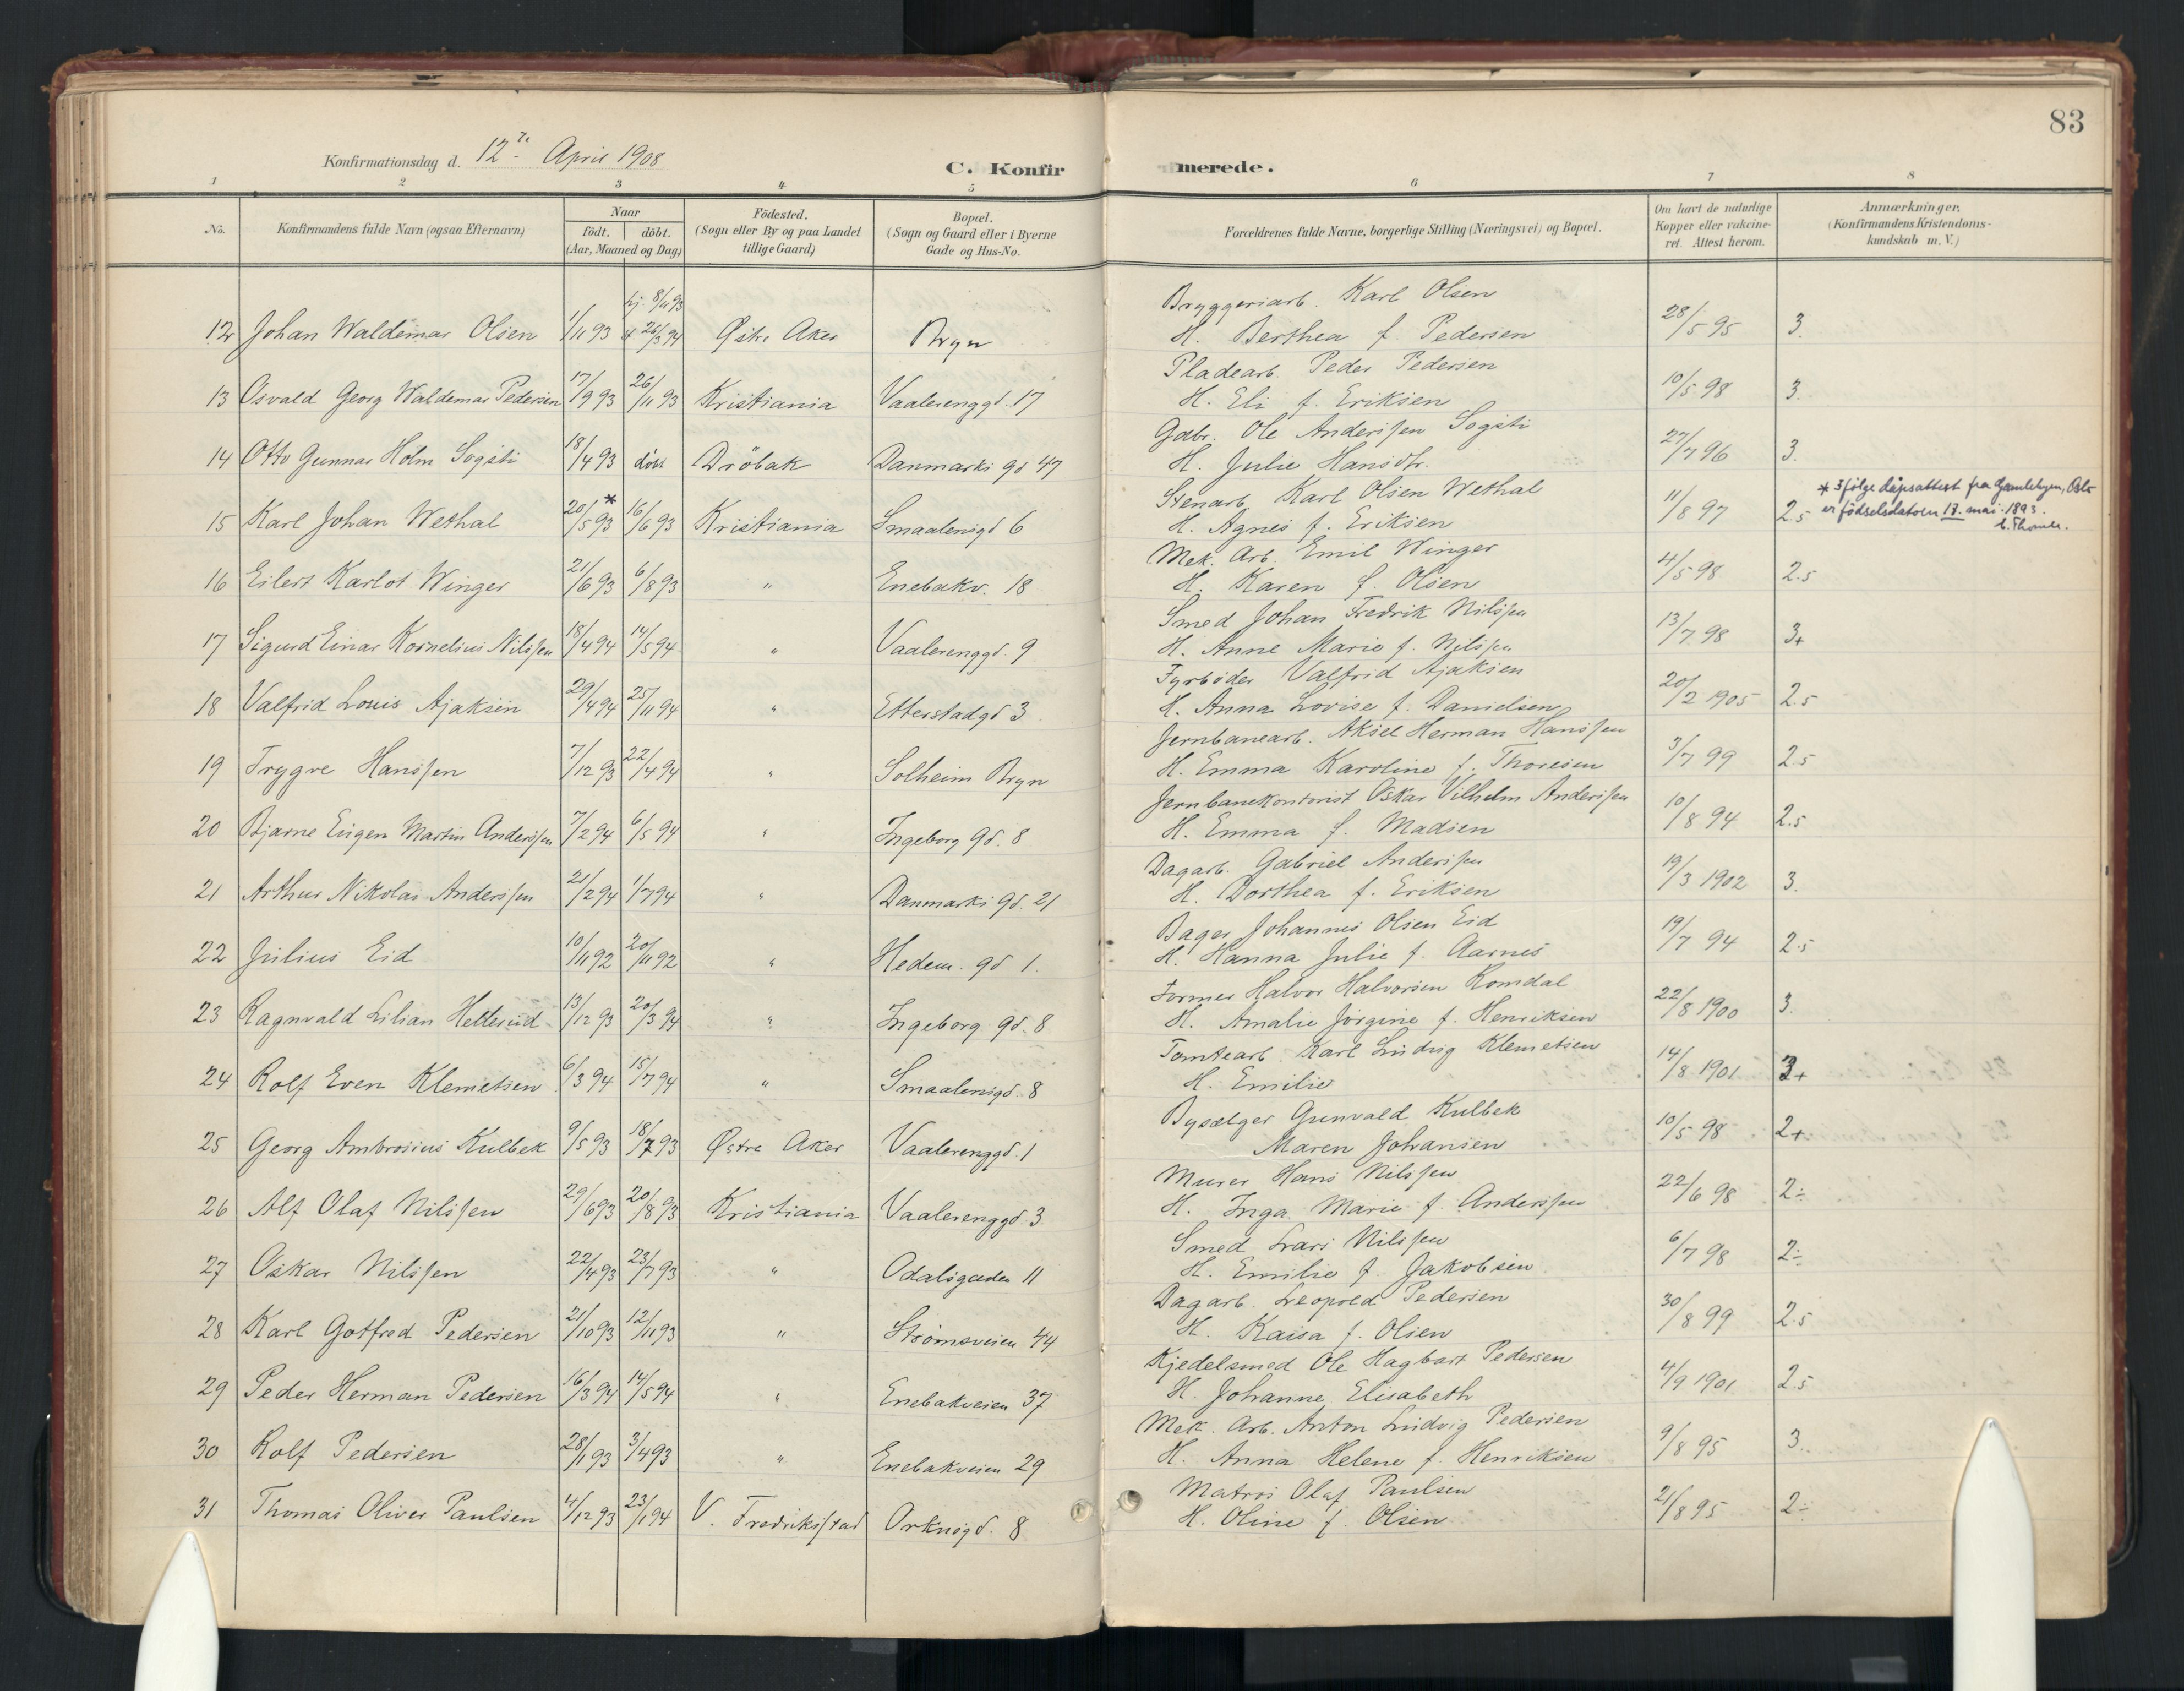 83
Konfirmationsdag d. 12te April 1908
C. Konfirmerede.
1 2 3 4 5 6 7 8
No. Konfirmandens fulde Navn (ogsaa Efternavn) Naar født. døbt. (Aar, Maaned og Dag) Fødested. (Sogn eller By og paa Landet tillige Gaard) Bopæl. (Sogn og Gaard eller i Byerne Gade og Hus-No. Forældrenes fulde Navne, borgerlige Stilling (Næringsvei) og Bopæl. Om havt de naturlige Kopper eller vakcineret. Attest herom. Anmærkninger. (Konfirmandens Kristendomskundskab m.V.)
hj. 8/11 93 Bryggeriarb. Karl Olsen
12 Johan Waldemar Olsen 1/11 93 k. 26/3 94 Østre Aker Bryn H. Berthea f. Pedersen 28/5 95 3.
Pladearb. Peder Pedersen
13 Osvald Georg Waldemar Pedersen 17/9 93 26/11 93 Kristiania Vaalerenggd. 17 H. Eli f. Eriksen 10/5 98 3.
Gabr. Ole Anderssen Sogsti
14 Otto Gunnar Holm Sogsti 18/4 93 døbt Drøbak Danmarks gd 47 H. Julie Hansdtr. 27/7 96 3.
Stenarb. Karl Olsen Wethal
15 Karl Johan Wethal 20/5 93 * 16/6 93 Kristiania Smaalensgd 6 H. Agnes f. Eriksen 11/8 97 2.5
* Ifølge dåpsattest fra Gamlebyen, Oslo
er fødselsdatoen 18. mai 1893.
Mek. Arb. Emil Winger
16 Eilert Karlot Winger 21/6 93 6/8 93 " Enebakv. 18 H. Karen f. Olsen 4/5 98 2.5
Smed Johan Fredrik Nilssen
17 Sigurd Einar Kornelius Nilssen 18/4 94 14/5 94 " Vaalerenggd. 9 H. Anne Marie f. Nilssen 13/7 98 3+
Fyrbøder Valfrid Ajaksen
18 Valfrid Louis Ajaksen 29/4 94 25/11 94 " Etterstadgd 3 H. Anna Lovise f. Danielsen 20/2 1905 2.5
Jernbanearb. Aksel Herman Hanssen
19 Trygve Hanssen 7/12 93 22/4 94 " Solheim Bryn H. Emma Karoline f. Thoresen 3/7 99 2.5
Jernbanekontorist Oskar Vilhelm Anderssen
20 Bjarne Eugen Martin Anderssen 7/2 94 6/5 94 " Ingeborg gd. 8 H. Emma f. Madsen 10/8 94 2.5
Dagarb. Gabriel Anderssen
21 Arthur Nikolai Anderssen 21/2 94 1/7 94 " Danmarks gd. 21 H. Dorthea f. Eriksen 19/3 1902 3.
Bager Johannes Olsen Eid
22 Julius Eid 10/11 92 20/11 92 " Hedem. gd 1. H. Hanna Julie f. Aarnes 19/7 94 2.5
Former Halvor Halvorsen Romdal
23 Ragnvald Lilian Hellerud 13/12 93 20/3 94 " Ingeborg gd. 8 H. Amalie Jørgine f. Henriksen 22/8 1900 3.
Tomtearb. Karl Ludvig Klemetsen
24 Rolf Even Klemetsen 6/3 94 15/7 94 " Smaalensgd. 8 H. Emilie 14/8 1901 3+
Bysælger Gunvald Kulbek
25 Georg Ambrosius Kulbek 9/5 93 18/7 93 Østre Aker Vaalerenggd. 1 Maren Johansen 10/5 98 2+
Murer Hans Nilssen
26 Alf Olaf Nilssen 29/6 93 20/8 93 Kristiania Vaalerenggd. 3 H. Inga Marie f. Anderssen 22/6 98 2÷
Smed Lars Nilssen
27 Oskar Nilssen 22/4 93 23/7 93 " Odalsgaden 11 H. Emilie f. Jakobsen 6/7 98 2÷
Dagarb. Leopold Pedersen
28 Karl Gotfred Pedersen 21/10 93 12/11 93 " Strømsveien 44 H. Kaisa f. Olsen 30/8 99 2.5
Kjedelsmed Ole Hagbart Pedersen
29 Peder Herman Pedersen 16/3 94 14/5 94 " Enebakveien 37 H. Johanne Elisabeth 4/9 1901 2.5
Mek. Arb. Anton Ludvig Pedersen
30 Rolf Pedersen 28/1 93 3/4 93 " Enebakveien 29 H. Anna Helene f. Henriksen 9/8 95 3.
Matros Olaf Paulsen
31 Thomas Oliver Paulsen 4/12 93 23/1 94 V. Fredriksstad Orknøgd. 8 H. Oline f. Olsen 21/8 95 2÷